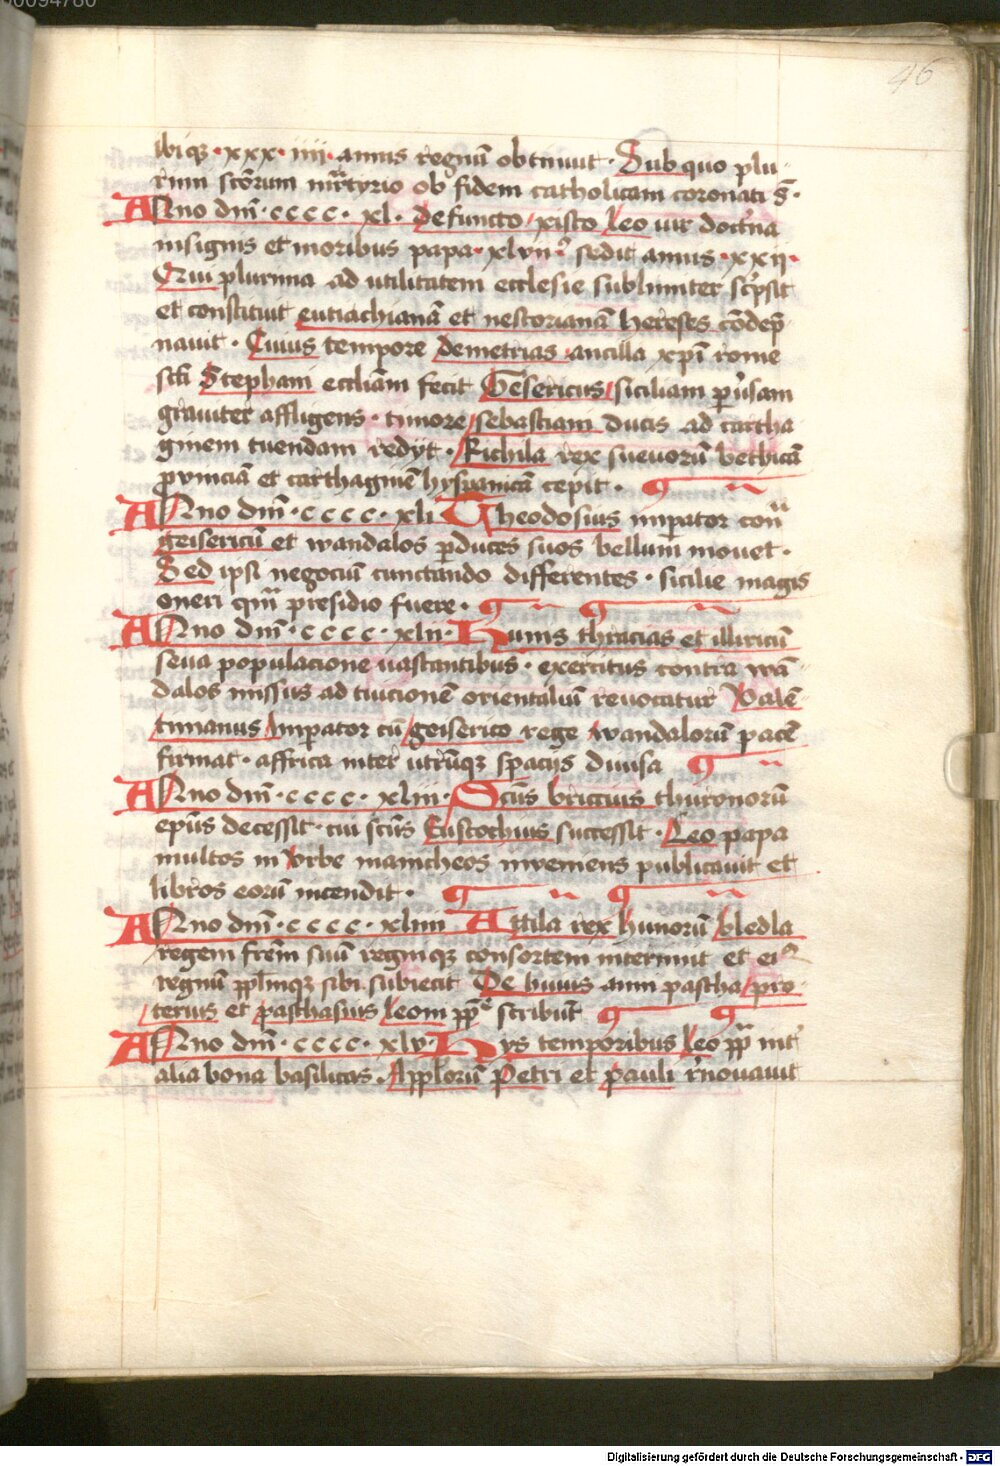 00094780
46
ibiqꝫ · xxx · iiii · annis regnū obtinuit · Sub quo plu-
rimi scōrum mr̄tyrio ob fidem catholicam coronati s̄ ·
ANno dnī · cccc · xl · defuncto xisto Leo uir doctͥna
insignis et moribus papa · xlvii⁹ sedit annis · xxij ·
Qui plurima ad utilitatem ecclesie sublimiter scͥpsit
et constituit eutiachianā et nestorianā hereses cōdep̄-
nauit · Cuius tempore demetrias ancilla xp̄i rome
scti Stephani eccliam fecit Gesericus siciliam ꝑuͥsam
grauiter affligens · timore sebastiani ducis ad cartha
ginem tuendam redijt · Richila rex sueuorū bethicā
ꝓuinciā et carthaginē hyspanicā cepit ·
ANno dnī · cccc · xli Theodosius imꝑator con̄
geisericū et wandalos ꝑ duces suos bellum mouet ·
Sed ipsi negociū cunctando differentes · sicilie magis
oneri qm̄ presidio fuere ·
ANno dnī · cccc · xlii · Hunis thracias et illiricū
seua populacione uastantibus · exercitus contra wā-
dalos missus ad tiucionē orientaliū reuocatur Valē-
tinianus Imꝑator cū geiserico rege wandalorū pacē
firmat · affrica inter utrūqꝫ spacijs diuisa
ANno dnī · cccc · xliii · Scūs briccius thuronorū
ep̄us decessit · cui scūs Eustochius successit · Leo papa
multos in Vrbe manicheos inueniens publicauit et
libros eorū incendit ·
ANno dnī · cccc · xliiii Attila rex hunorū bledla
regem frēm suū regniqꝫ consortem interimit et ei⁹
regnū pplīnqꝫ sibi subiecit De huius anni pascha pro-
terius et paschasius Leoni pp̄e scribūt
ANno dnī · cccc · xlv · Hys temporibus Leo pp̄ int̄
alia bona basilicas · Appl̄orū Petri et pauli r̄nouauit
Digitalisierung gefördert durch die Deutsche Forschungsgemeinschaft - DFG